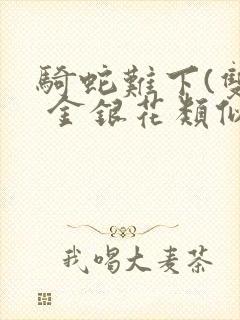 騎蛇難下(雙
金銀花類似
我喝大麥茶